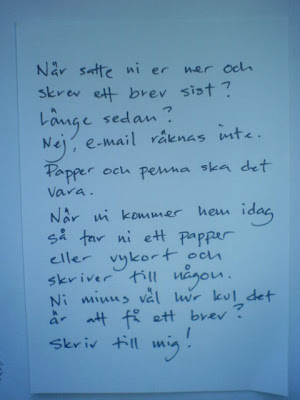 När satte ni er ner och
skrev ett brev sist?
Länge sedan?
Nej, e-mail räknas inte.
Papper och penna ska det
vara.
När ni kommer hem idag
så tar ni ett papper
eller vykort och
skriver till någon.
Ni minns väl hur kul det
är att få ett brev?
Skriv till mig!